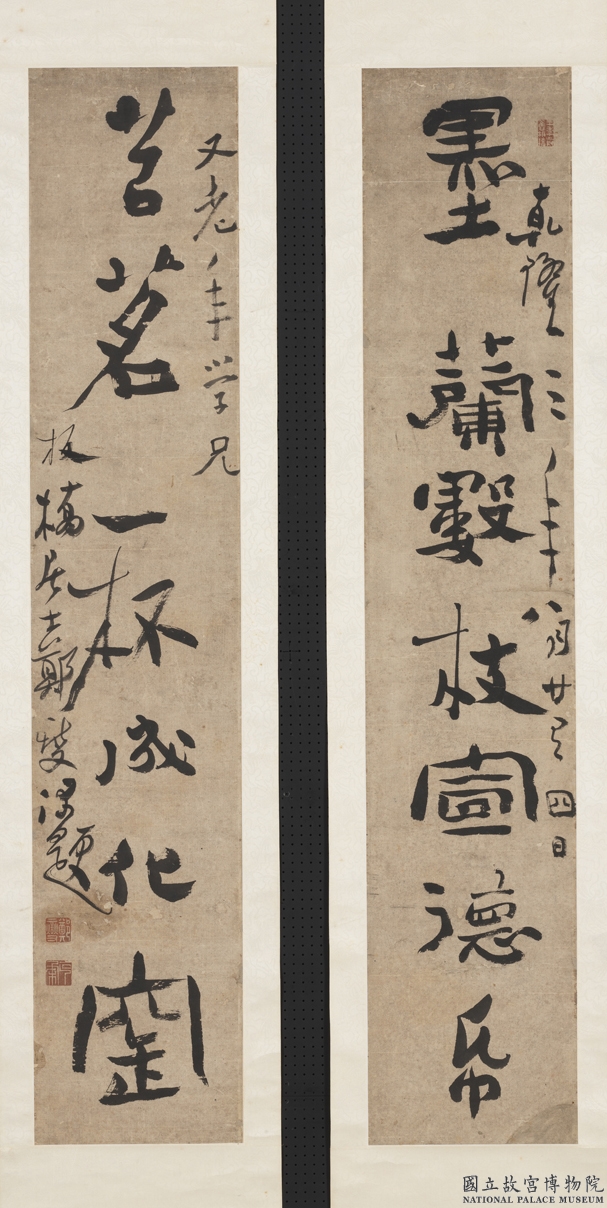 乾隆二年八月廿又四日
墨蘭數枝宣德帋
又老年学兄
苦茗一杯成化窰
板橋居士鄭燮題
國立故宮博物院
NATIONAL PALACE MUSEUM